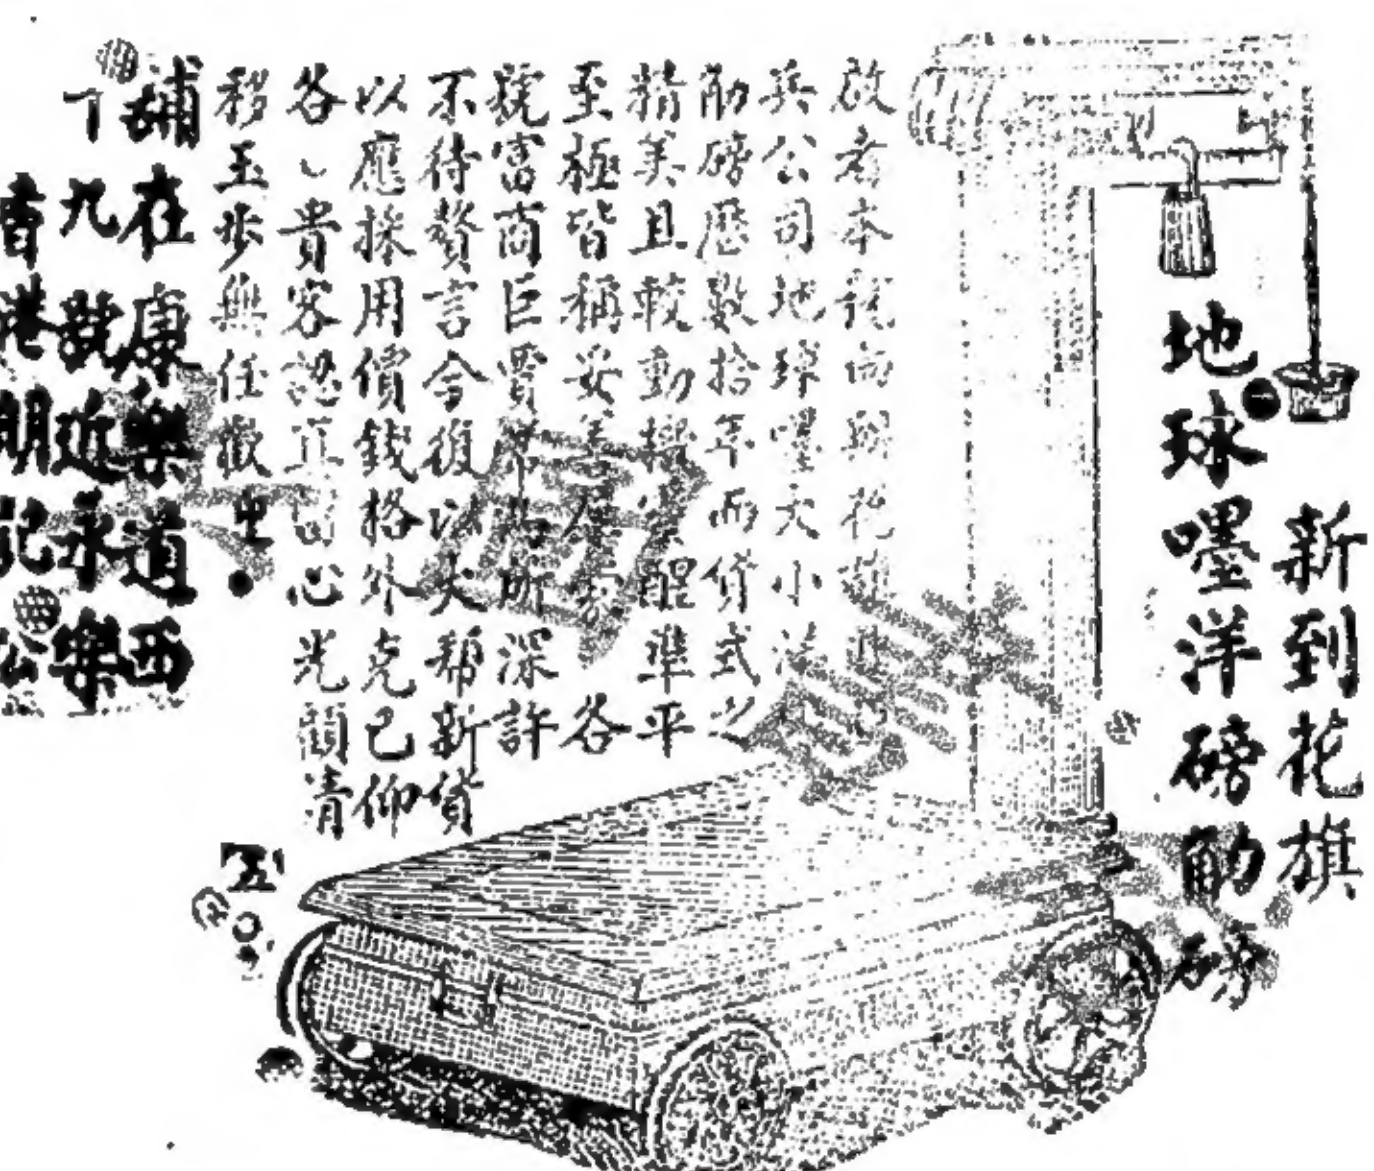 新到花旗
地球嚜洋磅觔磅
啟者本號向與花旗
公司地球嚜大小洋
觔磅歷數拾年而貨式之
精美且較動醒準平
至極皆稱妥善各
號富商巨賈所深許
不待贅言今復以大帮新貨
以應採用價錢格外克己仰
各貴客認真留心光顧請
移玉步無任歡
舖在康樂道西
九號近永樂
香港朋記公